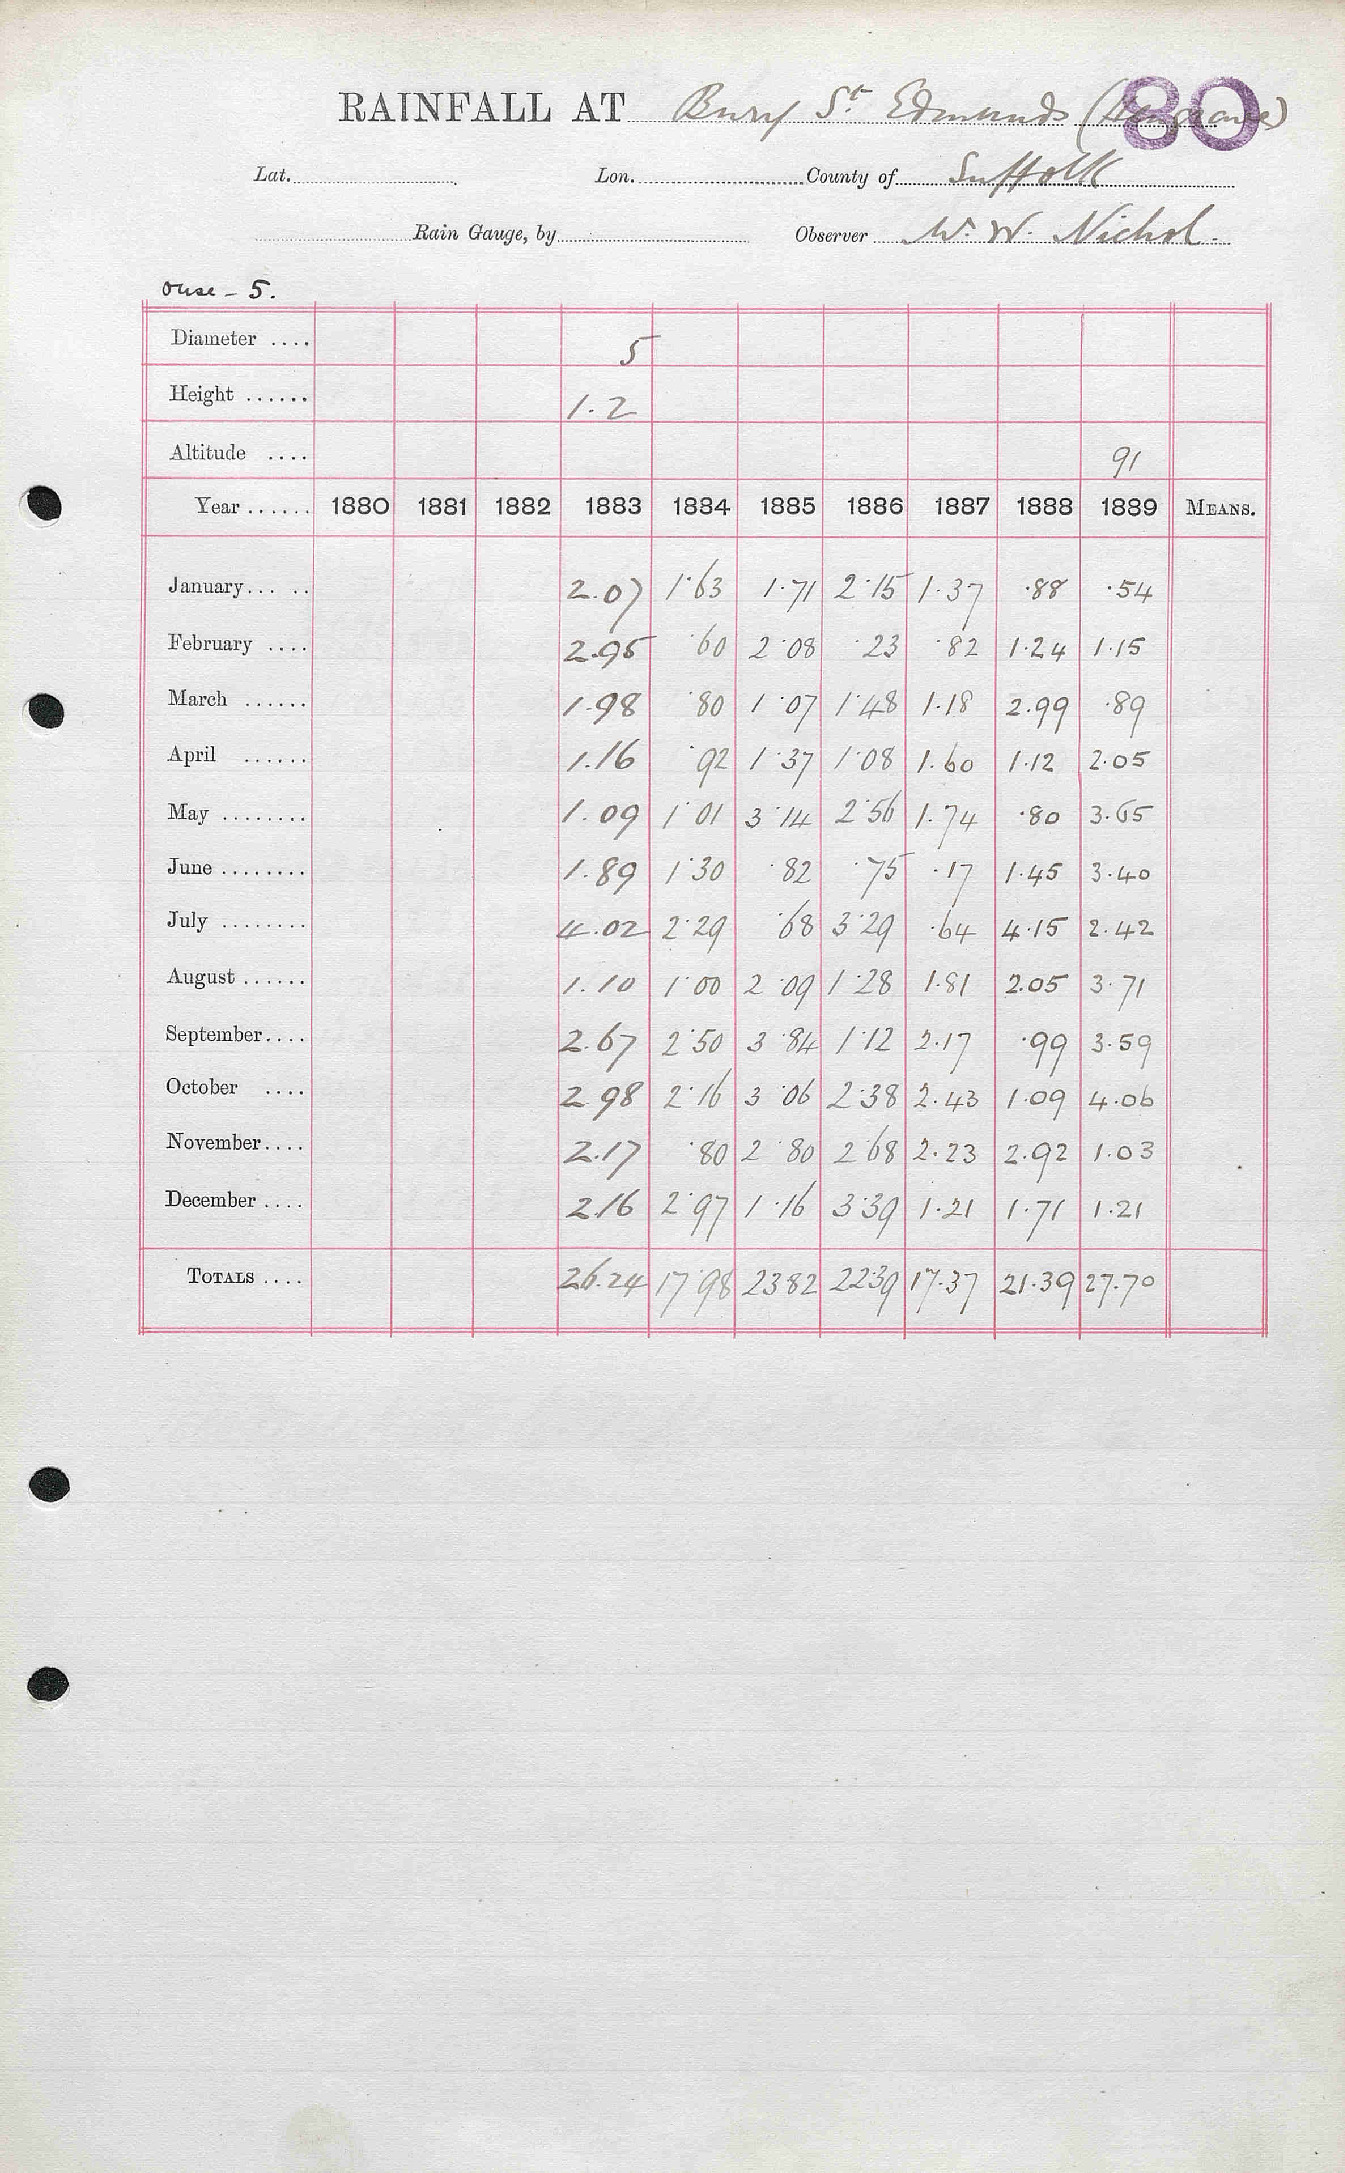 RAINFALL AT Bury St. Edmunds (Hengrave)
80
Lat. Lon. County of Suffolk
Rain Gauge, by Observer W. W. Nichol.
Ouse - 5.
Diameter .... 5
Height ...... 1.2
Altitude .... 91
Year ...... 1880 1881 1882 1883 1884 1885 1886 1887 1888 1889 MEANS.
January... .. 2.07 1.63 1.71 2.15 1.37 .88 .54
February .... 2.95 .60 2.08 .23 .82 1.24 1.15
March ...... 1.98 .80 1.07 1.48 1.18 2.99 .89
April ...... 1.16 .92 1.37 1.08 1.60 1.12 2.05
May ........ 1.09 1.01 3.14 2.56 1.74 .80 3.65
June ........ 1.89 1.30 .82 .75 .17 1.45 3.40
July ........ 4.02 2.29 .68 3.29 .64 4.15 2.42
August ...... 1.10 1.00 2.09 1.28 1.81 2.05 3.71
September.... 2.67 2.50 3.84 1.12 2.17 .99 3.59
October .... 2.98 2.16 3.06 2.38 2.43 1.09 4.06
November.... 2.17 .80 2.80 2.68 2.23 2.92 1.03
December .... 2.16 2.97 1.16 3.39 1.21 1.71 1.21
TOTALS .... 26.24 17.98 23.82 22.39 17.37 21.39 27.70